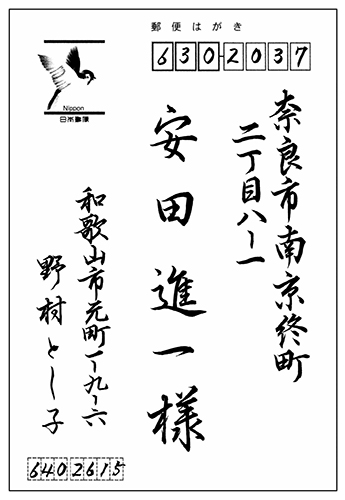 郵便はがき
630-2037
奈良市南京終町
二丁目八ー一
安田進一様
Nippon
日本郵便
和歌山市元町一ー九ー六
野村とし子
6402615